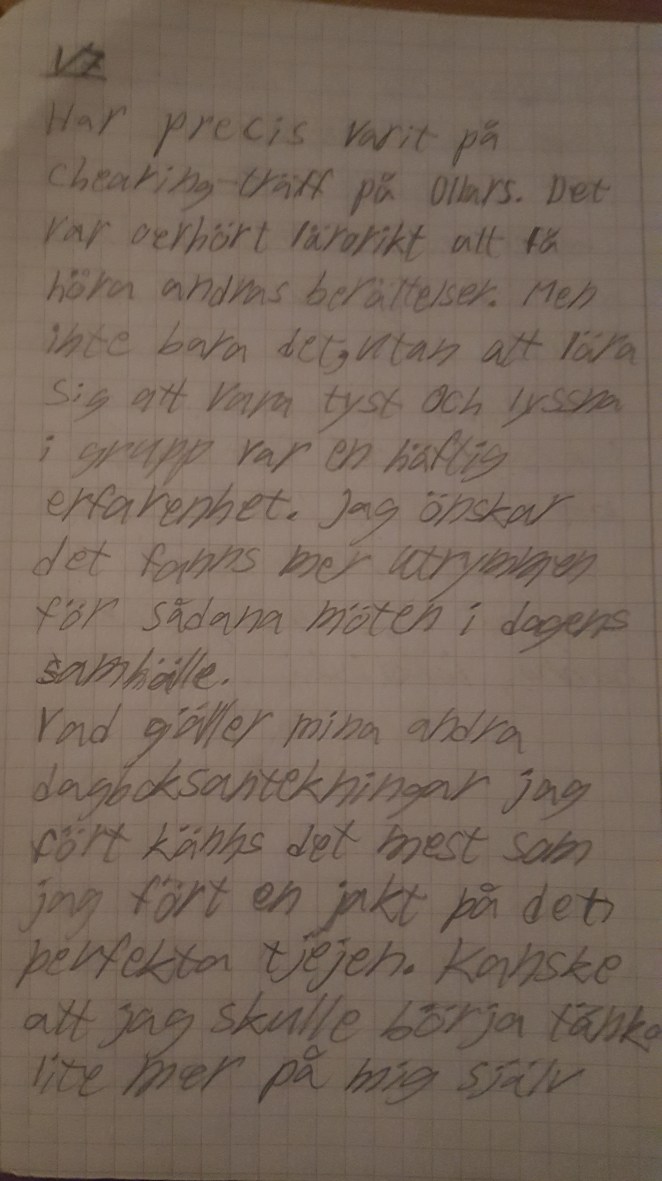 V7
Har precis varit på
chearing-träff på Ollars. Det
var oerhört lärorikt att få
höra andras berättelser. Men
inte bara det, utan att lära
sig att vara tyst och lyssna
i grupp var en häftig
erfarenhet. Jag önskar
det fanns mer utrymmen
för sådana möten i dagens
samhälle.
Vad gäller mina andra
dagboksantekningar jag
fört känns det mest som
jag fört en jakt på den
perfekta tjejen. Kanske
att jag skulle börja tänka
lite mer på mig själv